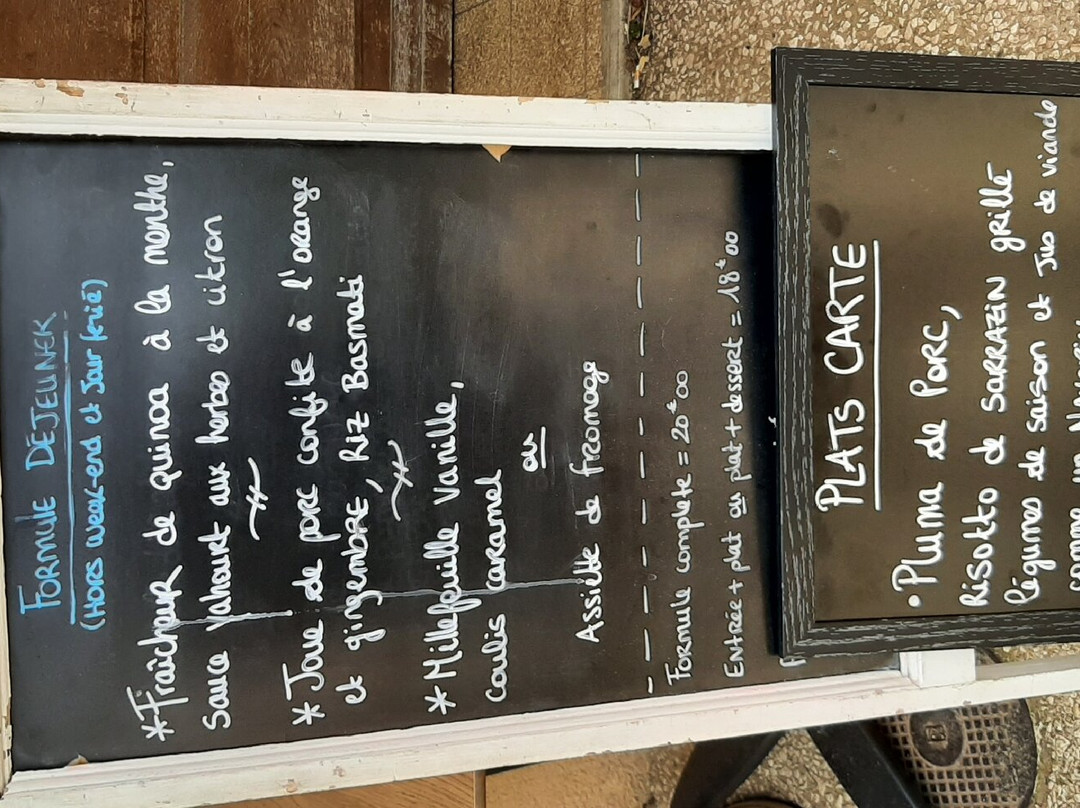 FORMULE DÉJEUNER
(HORS week-end et Jour férié)
*Fraîcheur de quinoa à la menthe,
Sauce yahourt aux herbes et citron
*Joue de porc confite à l'orange
et gingembre, Riz Basmati
*Millefeuille Vanille,
Coulis caramel
ou
Assiette de fromage
FORMULE complète = 20€00
Entrée + plat ou plat + dessert = 18€00
PLATS CARTE
• Pluma de Porc,
Risotto de SARRAZIN grillé
légumes de saison et Jus de viande
comme un